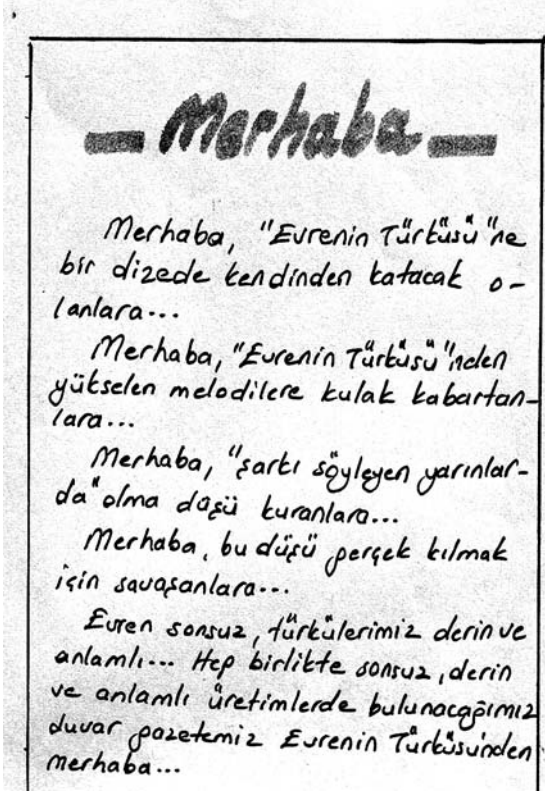 Merhaba
Merhaba, "Evrenin Türküsü"ne
bir dizede kendinden katacak o-
lanlara...
Merhaba, "Evrenin Türküsü"nden
yükselen melodilere kulak kabartan-
lara...
Merhaba, "şarkı söyleyen yarınlar-
da" olma düşü kuranlara...
Merhaba, bu düşü gerçek kılmak
için savaşanlara...
Evren sonsuz, türkülerimiz derin ve
anlamlı... Hep birlikte sonsuz, derin
ve anlamlı üretimlerde bulunacağımız
duvar gazetemiz Evrenin Türküsünden
merhaba...